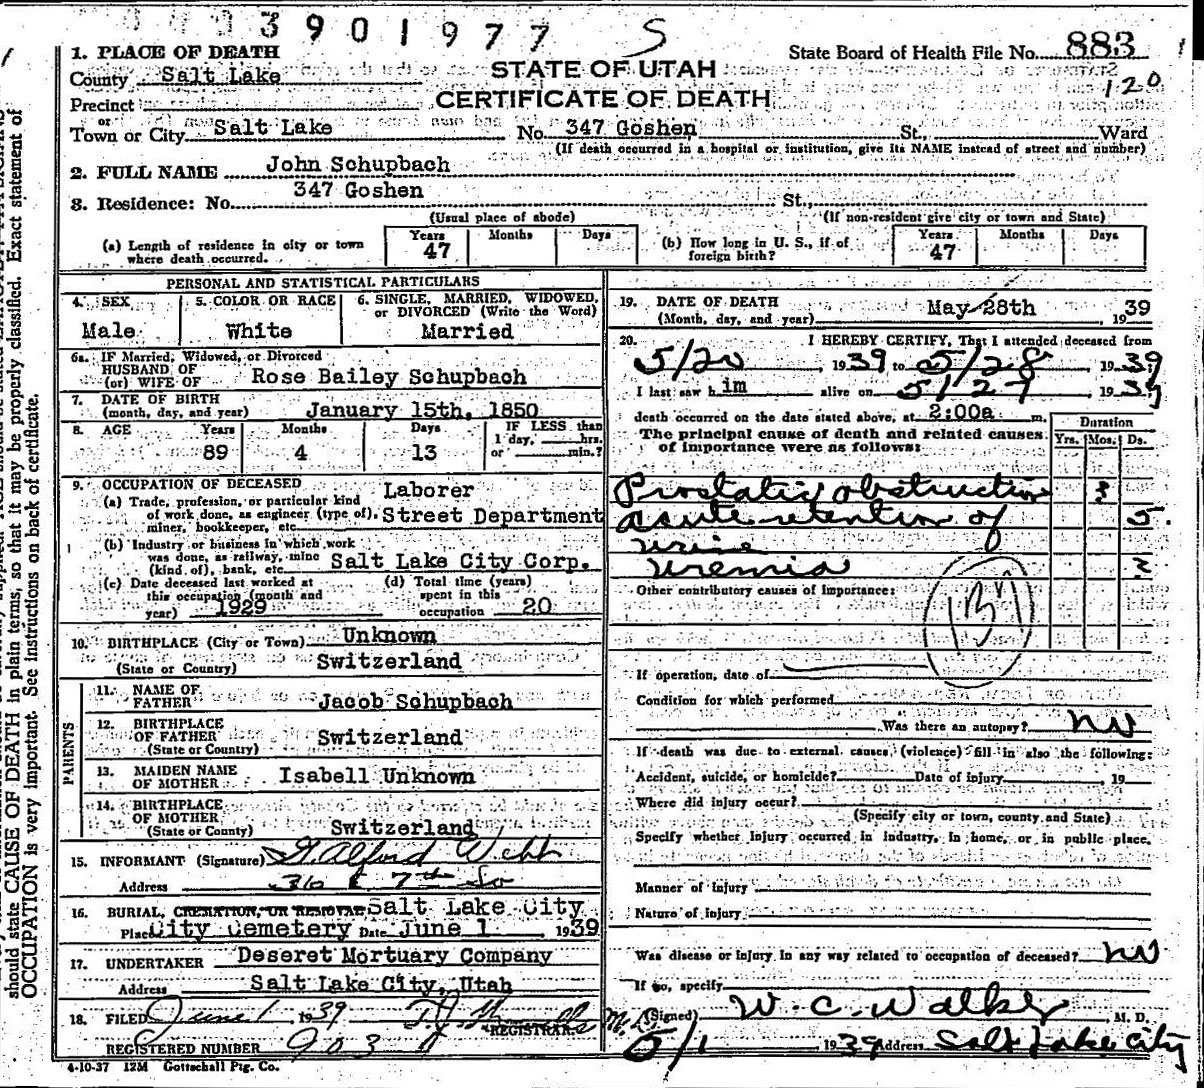 3901977 S
1. PLACE OF DEATH
State Board of Health File No. 883
County Salt Lake
STATE OF UTAH
120
Precinct
CERTIFICATE OF DEATH
or
Town or City Salt Lake No. 347 Goshen St., Ward
(If death occurred in a hospital or institution, give its NAME instead of street and number)
2. FULL NAME John Schupbach
3. Residence: No. 347 Goshen St.,
(Usual place of abode) (If non-resident give city or town and State)
(a) Length of residence in city or town where death occurred. Years 47 Months Days
(b) How long in U. S., if of foreign birth? Years 47 Months Days
PERSONAL AND STATISTICAL PARTICULARS
4. SEX Male
5. COLOR OR RACE White
6. SINGLE, MARRIED, WIDOWED, or DIVORCED (Write the Word) Married
6a. IF Married, Widowed, or Divorced
HUSBAND OF
(or) WIFE OF Rose Bailey Schupbach
7. DATE OF BIRTH
(month, day, and year) January 15th, 1850
8. AGE Years 89 Months 4 Days 13 IF LESS than 1 day, hrs. or min.?
9. OCCUPATION OF DECEASED
(a) Trade, profession, or particular kind of work done, as engineer (type of), miner, bookkeeper, etc. Laborer Street Department
(b) Industry or business in which work was done, as railway, mine (kind of), bank, etc. Salt Lake City Corp.
(c) Date deceased last worked at this occupation (month and year) 1929
(d) Total time (years) spent in this occupation 20
10. BIRTHPLACE (City or Town) Unknown
(State or Country) Switzerland
PARENTS
11. NAME OF FATHER Jacob Schupbach
12. BIRTHPLACE OF FATHER (State or Country) Switzerland
13. MAIDEN NAME OF MOTHER Isabell Unknown
14. BIRTHPLACE OF MOTHER (State or County) Switzerland
15. INFORMANT (Signature) Alford Webb
Address 36 E 7th So
16. BURIAL, CREMATION, OR REMOVAL Salt Lake City
Place City Cemetery Date June 1 1939
17. UNDERTAKER Deseret Mortuary Company
Address Salt Lake City, Utah
18. FILED June 1 1939
REGISTRAR
REGISTERED NUMBER 903
4-10-37 12M Gottschall Ptg. Co.
19. DATE OF DEATH
(Month, day, and year) May 28th 1939
20. I HEREBY CERTIFY, That I attended deceased from
5/20, 1939 to 5/28, 1939
I last saw him alive on 5/27 1939
death occurred on the date stated above, at 2:00a m.
The principal cause of death and related causes of importance were as follows:
Duration
Yrs. Mos. Ds.
Prostatic obstruction 3
acute retention of 5
urine
uremia 2
Other contributory causes of importance:
137
If operation, date of
Condition for which performed
Was there an autopsy? no
If death was due to external causes, (violence) fill in also the following:
Accident, suicide, or homicide? Date of injury 19
Where did injury occur?
(Specify city or town, county and State)
Specify whether injury occurred in industry, in home, or in public place.
Manner of injury
Nature of injury
Was disease or injury in any way related to occupation of deceased? no
If so, specify
(Signed) W. C. Walker M. D.
6/1 1939 Address Salt Lake City
should state CAUSE OF DEATH in plain terms, so that it may be properly classified. Exact statement of
OCCUPATION is very important. See instructions on back of certificate.